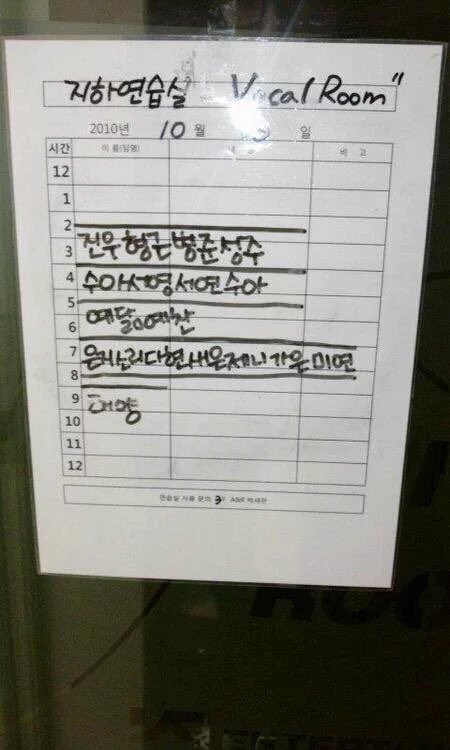 지하연습실 Vocal Room"
2010년 10 월 일
시간 이 름(팀명) 비 고
12
1
2
3 진우 형근 병준 성수
4 수아서영서연수아
5
6 예담예찬
7 은지 다현새은제니가은미연
8
9 태양
10
11
12
연습실 사용 문의 3F